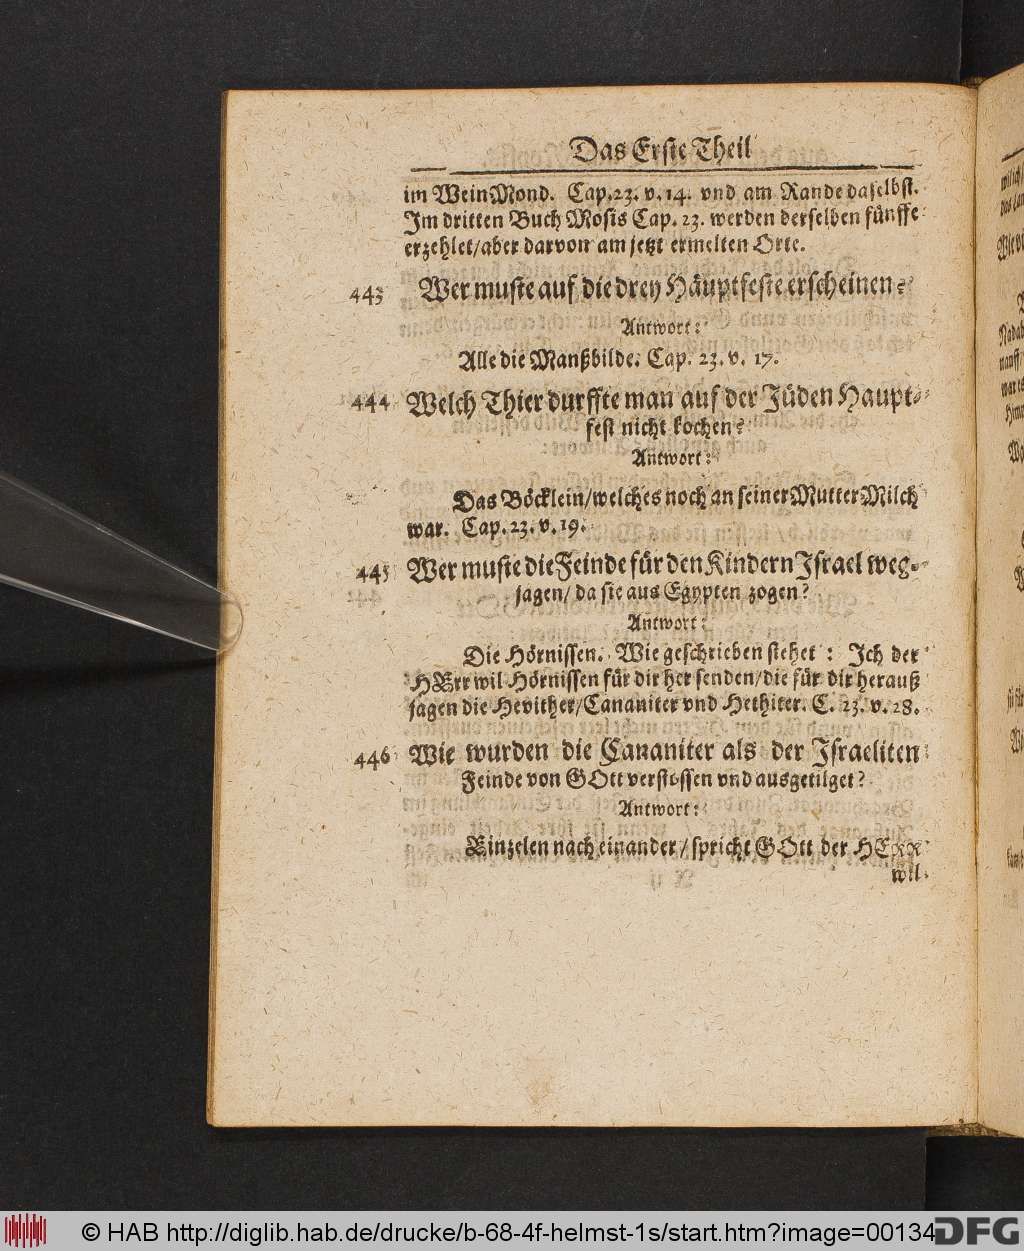 Das Erste Theil
im WeinMond. Cap. 23. v. 14. vnd am Rande daselbst.
Im dritten Buch Mosis Cap. 23. werden derselben fünffe
erzehlet/aber darvon am jetzt ermelten Orte.
443 Wer muste auf die drey Häuptfeste erscheinen?
Antwort:
Alle die Manßbilde. Cap. 23. v. 17.
444 Welch Thier durffte man auf der Jüden Haupt-
fest nicht kochen?
Antwort:
Das Böcklein/welches noch an seiner Mutter Milch
war. Cap. 23. v. 19.
445 Wer muste die Feinde für den Kindern Israel weg-
jagen/ da sie aus Egypten zogen?
Antwort:
Die Hörnissen. Wie geschrieben stehet: Ich der
HErr wil Hörnissen für dir her senden/die für dir herauß
jagen die Hevither/Cananiter vnd Hethiter. C. 23. v. 28.
446 Wie wurden die Cananiter als der Israeliten
Feinde von GOtt verstossen vnd ausgetilget?
Antwort:
Einzelen nach einander/ spricht GOtt der HErr
wil
© HAB http://diglib.hab.de/drucke/b-68-4f-helmst-1s/start.htm?image=00134
DFG